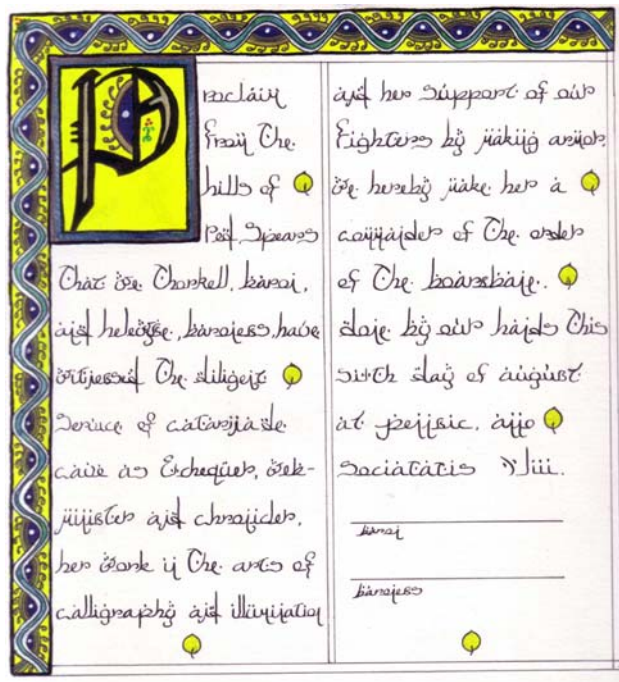 Proclaim
from The
hills of
Red Spears
That we Thorkell, baron,
and heloise, baroness, have
witnessed The diligent
Service of catarina de
cave as Exchequer, Web-
minister and chronicler,
her work in The arts of
calligraphy and illumination
and her Support of our
Fighters by making armor,
We hereby make her a
commander of The order
of The boarsbane.
done by our hands This
sixth day of august
at pennsic, anno
Sociatatis xliii.
baron
baroness